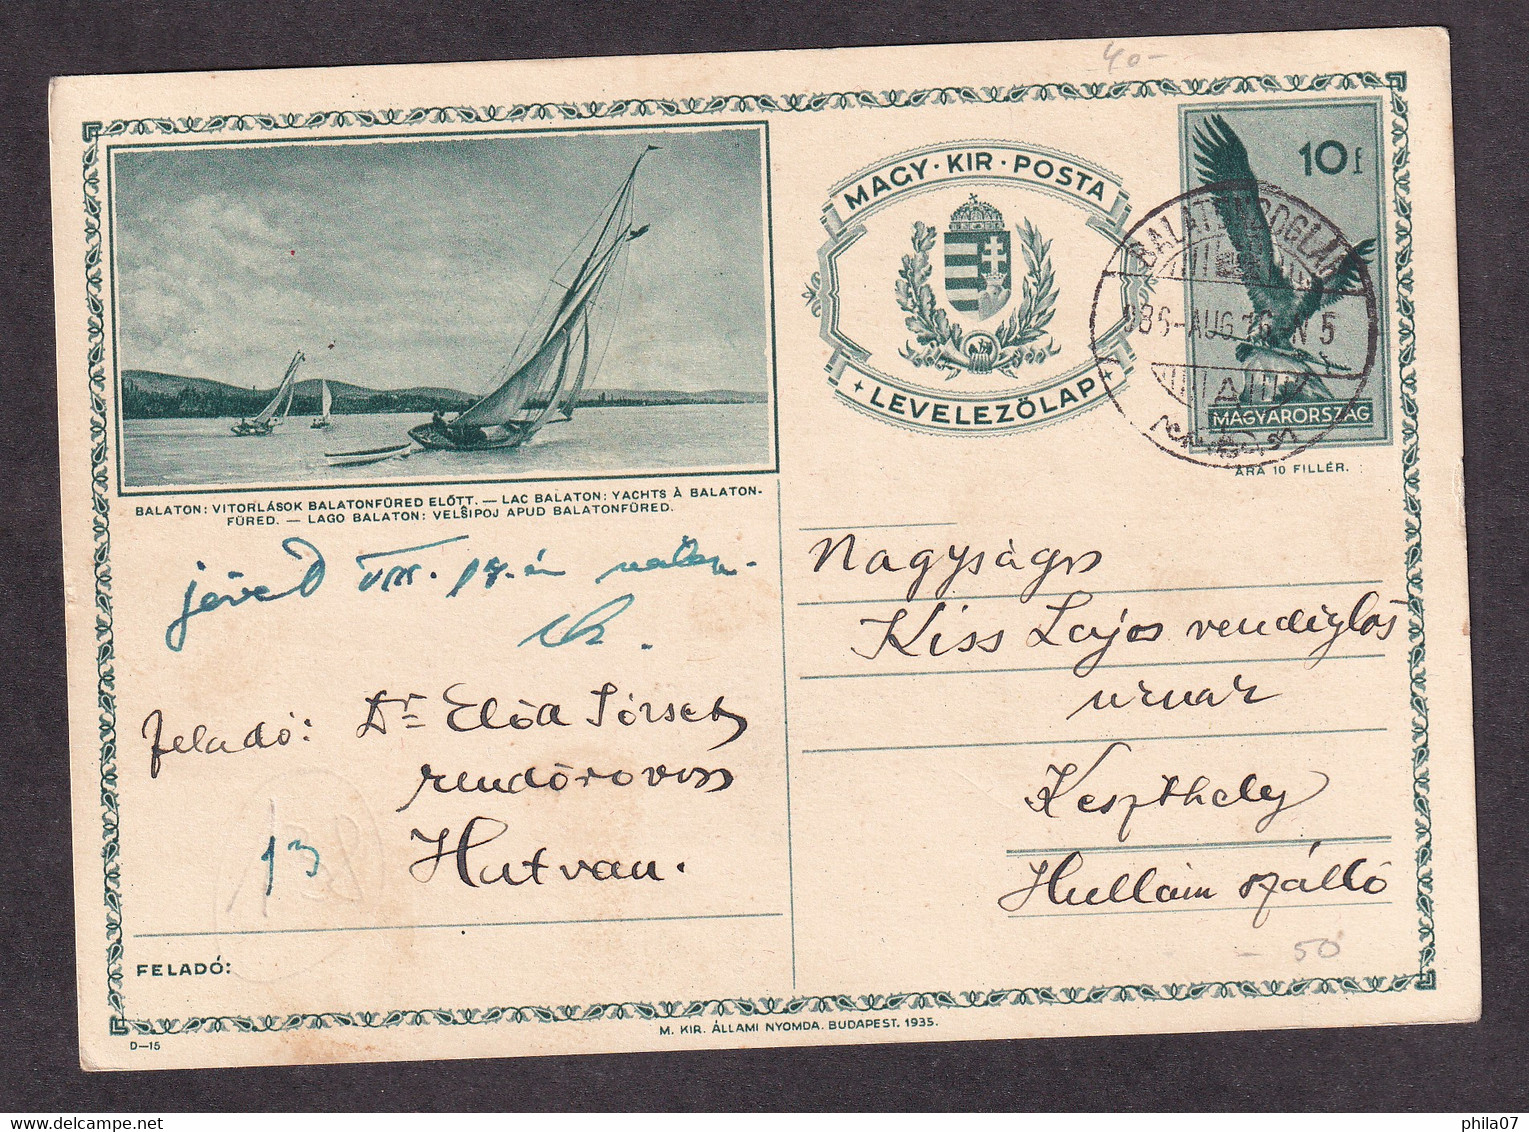 40-
MAGY·KIR·POSTA
LEVELEZŐLAP
10 f
MAGYARORSZÁG
ÁRA 10 FILLÉR.
-AUG.16. N 5
A
BALATON: VITORLÁSOK BALATONFÜRED ELŐTT. — LAC BALATON: YACHTS À BALATON-
FÜRED. — LAGO BALATON: VELŜIPOJ APUD BALATONFÜRED.
VIII. 17.-én
feladó: Dr Előd
Hatvan.
13
Nagyságos
Kiss Lajos vendéglős
urnak
Keszthely
Hullám szálló
- 50
FELADÓ:
D—15
M. KIR. ÁLLAMI NYOMDA. BUDAPEST. 1935.
phila07